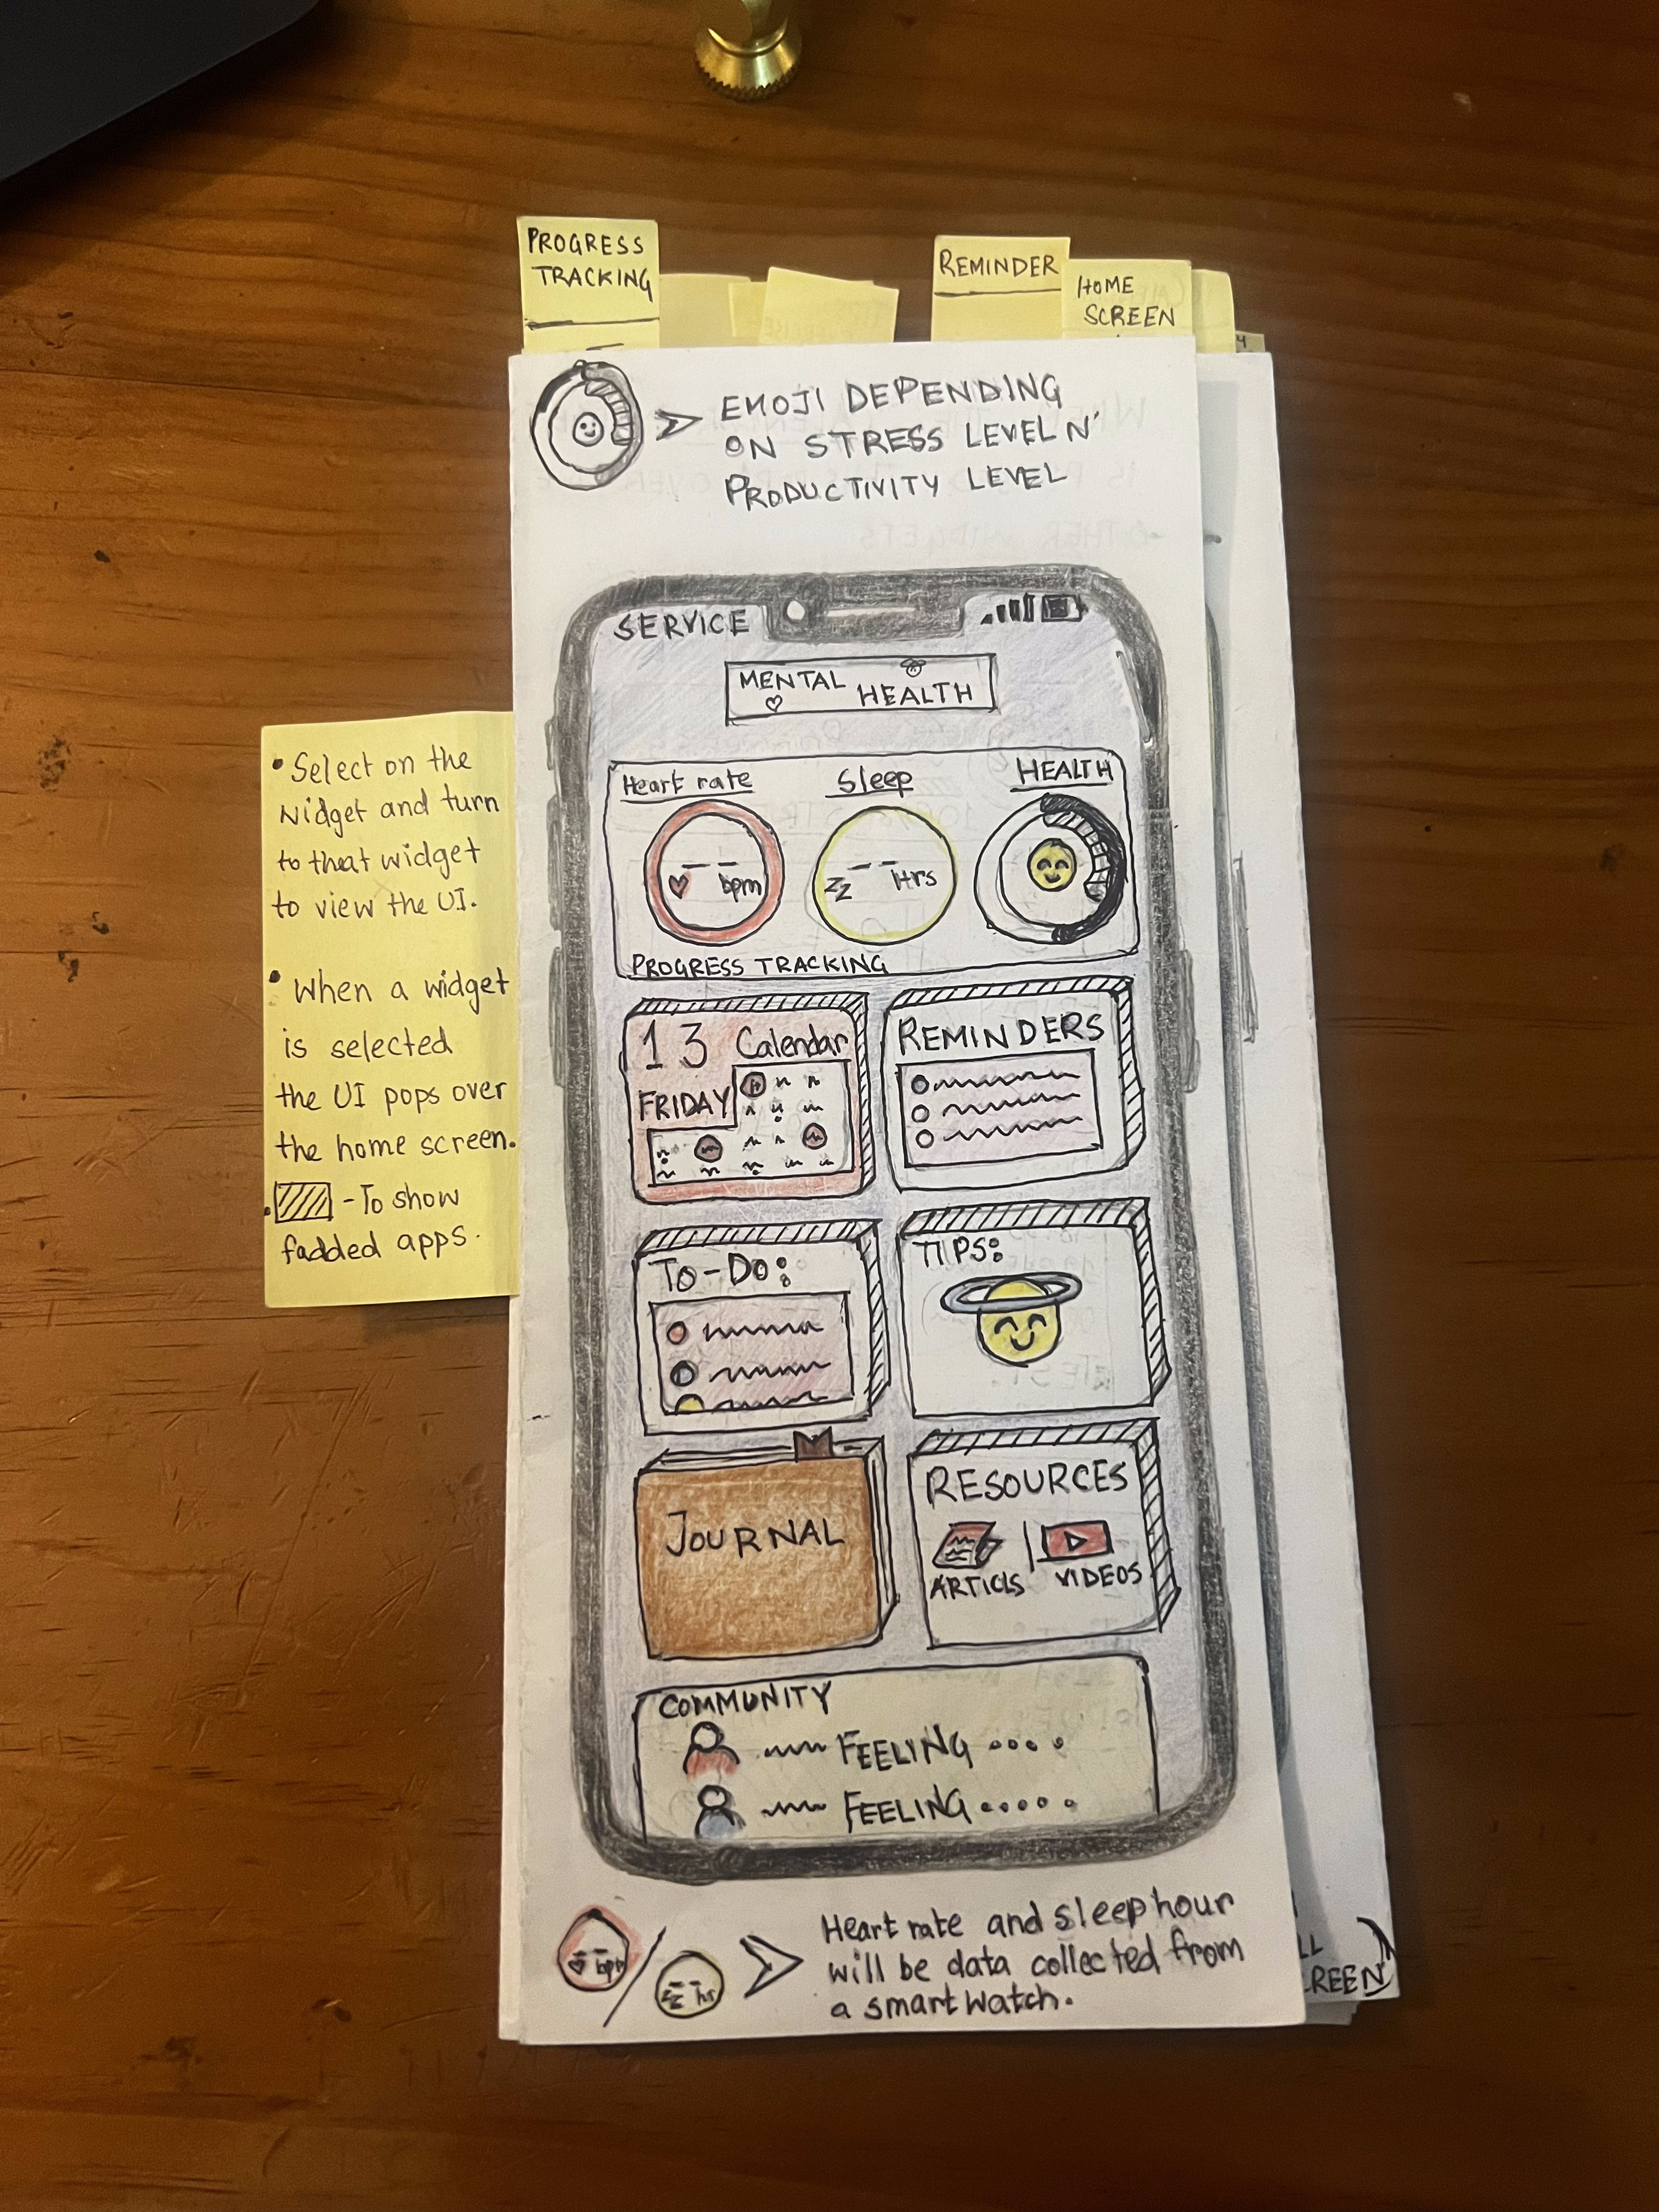 PROGRESS
TRACKING
REMINDER
HOME
SCREEN
EMOJI DEPENDING
ON STRESS LEVEL N'
PRODUCTIVITY LEVEL
• Select on the
widget and turn
to that widget
to view the UI.
• When a widget
is selected
the UI pops over
the home screen.
- To show
fadded apps.
SERVICE
MENTAL HEALTH
Heart rate
Sleep
HEALTH
-- bpm
zz -- Hrs
PROGRESS TRACKING
13 Calendar
FRIDAY
REMINDERS
TO-DO:
TIPS:
JOURNAL
RESOURCES
ARTICLS
VIDEOS
COMMUNITY
FEELING ....
FEELING .....
-- bpm
zz -- hs
Heart rate and sleep hour
will be data collected from
a smart watch.
LL
REEN